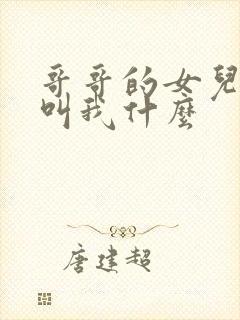 哥哥的女兒
叫我什麼
唐建超